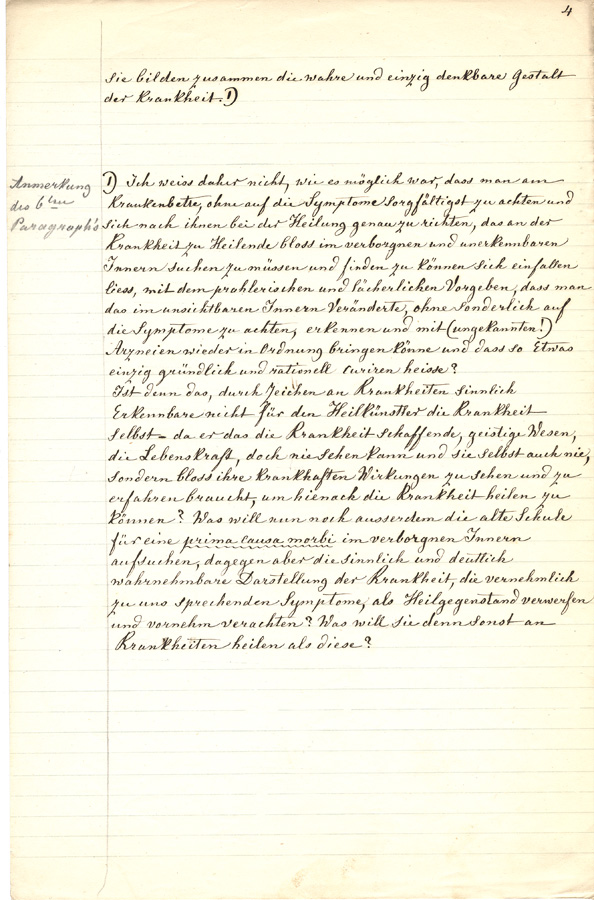 4
sie bilden zusammen die wahre und einzig denkbare Gestalt
der Krankheit. 1)
Anmerkung
des 6ten
Paragraph's
1) Ich weiss daher nicht, wie es möglich war, dass man am
Krankenbette, ohne auf die Symptome sorgfältigst zu achten und
sich nach ihnen bei der Heilung genau zu richten, das an der
Krankheit zu Heilende bloss im verborgnen und unerkennbaren
Innern suchen zu müssen und finden zu können sich einfallen
liess, mit dem prahlerischen und lächerlichen Vorgeben, dass man
das im unsichtbaren Innern Veränderte, ohne sonderlich auf
die Symptome zu achten, erkennen und mit (ungekannten!)
Arzneien wieder in Ordnung bringen könne und dass so Etwas
einzig gründlich und rationell curiren heisse?
Ist denn das, durch Zeichen an Krankheiten sinnlich
Erkennbare nicht für den Heilkünstler die Krankheit
selbst - da er das die Krankheit schaffende, geistige Wesen,
die Lebenskraft, doch nie sehen kann und sie selbst auch nie,
sondern bloss ihre krankhaften Wirkungen zu sehen und zu
erfahren braucht, um hienach die Krankheit heilen zu
können? Was will nun noch ausserdem die alte Schule
für eine prima causa morbi im verborgnen Innern
aufsuchen, dagegen aber die sinnlich und deutlich
wahrnehmbare Darstellung der Krankheit, die vernehmlich
zu uns sprechenden Symptome, als Heilgegenstand verwerfen
und vornehm verachten? Was will sie denn sonst an
Krankheiten heilen als diese?